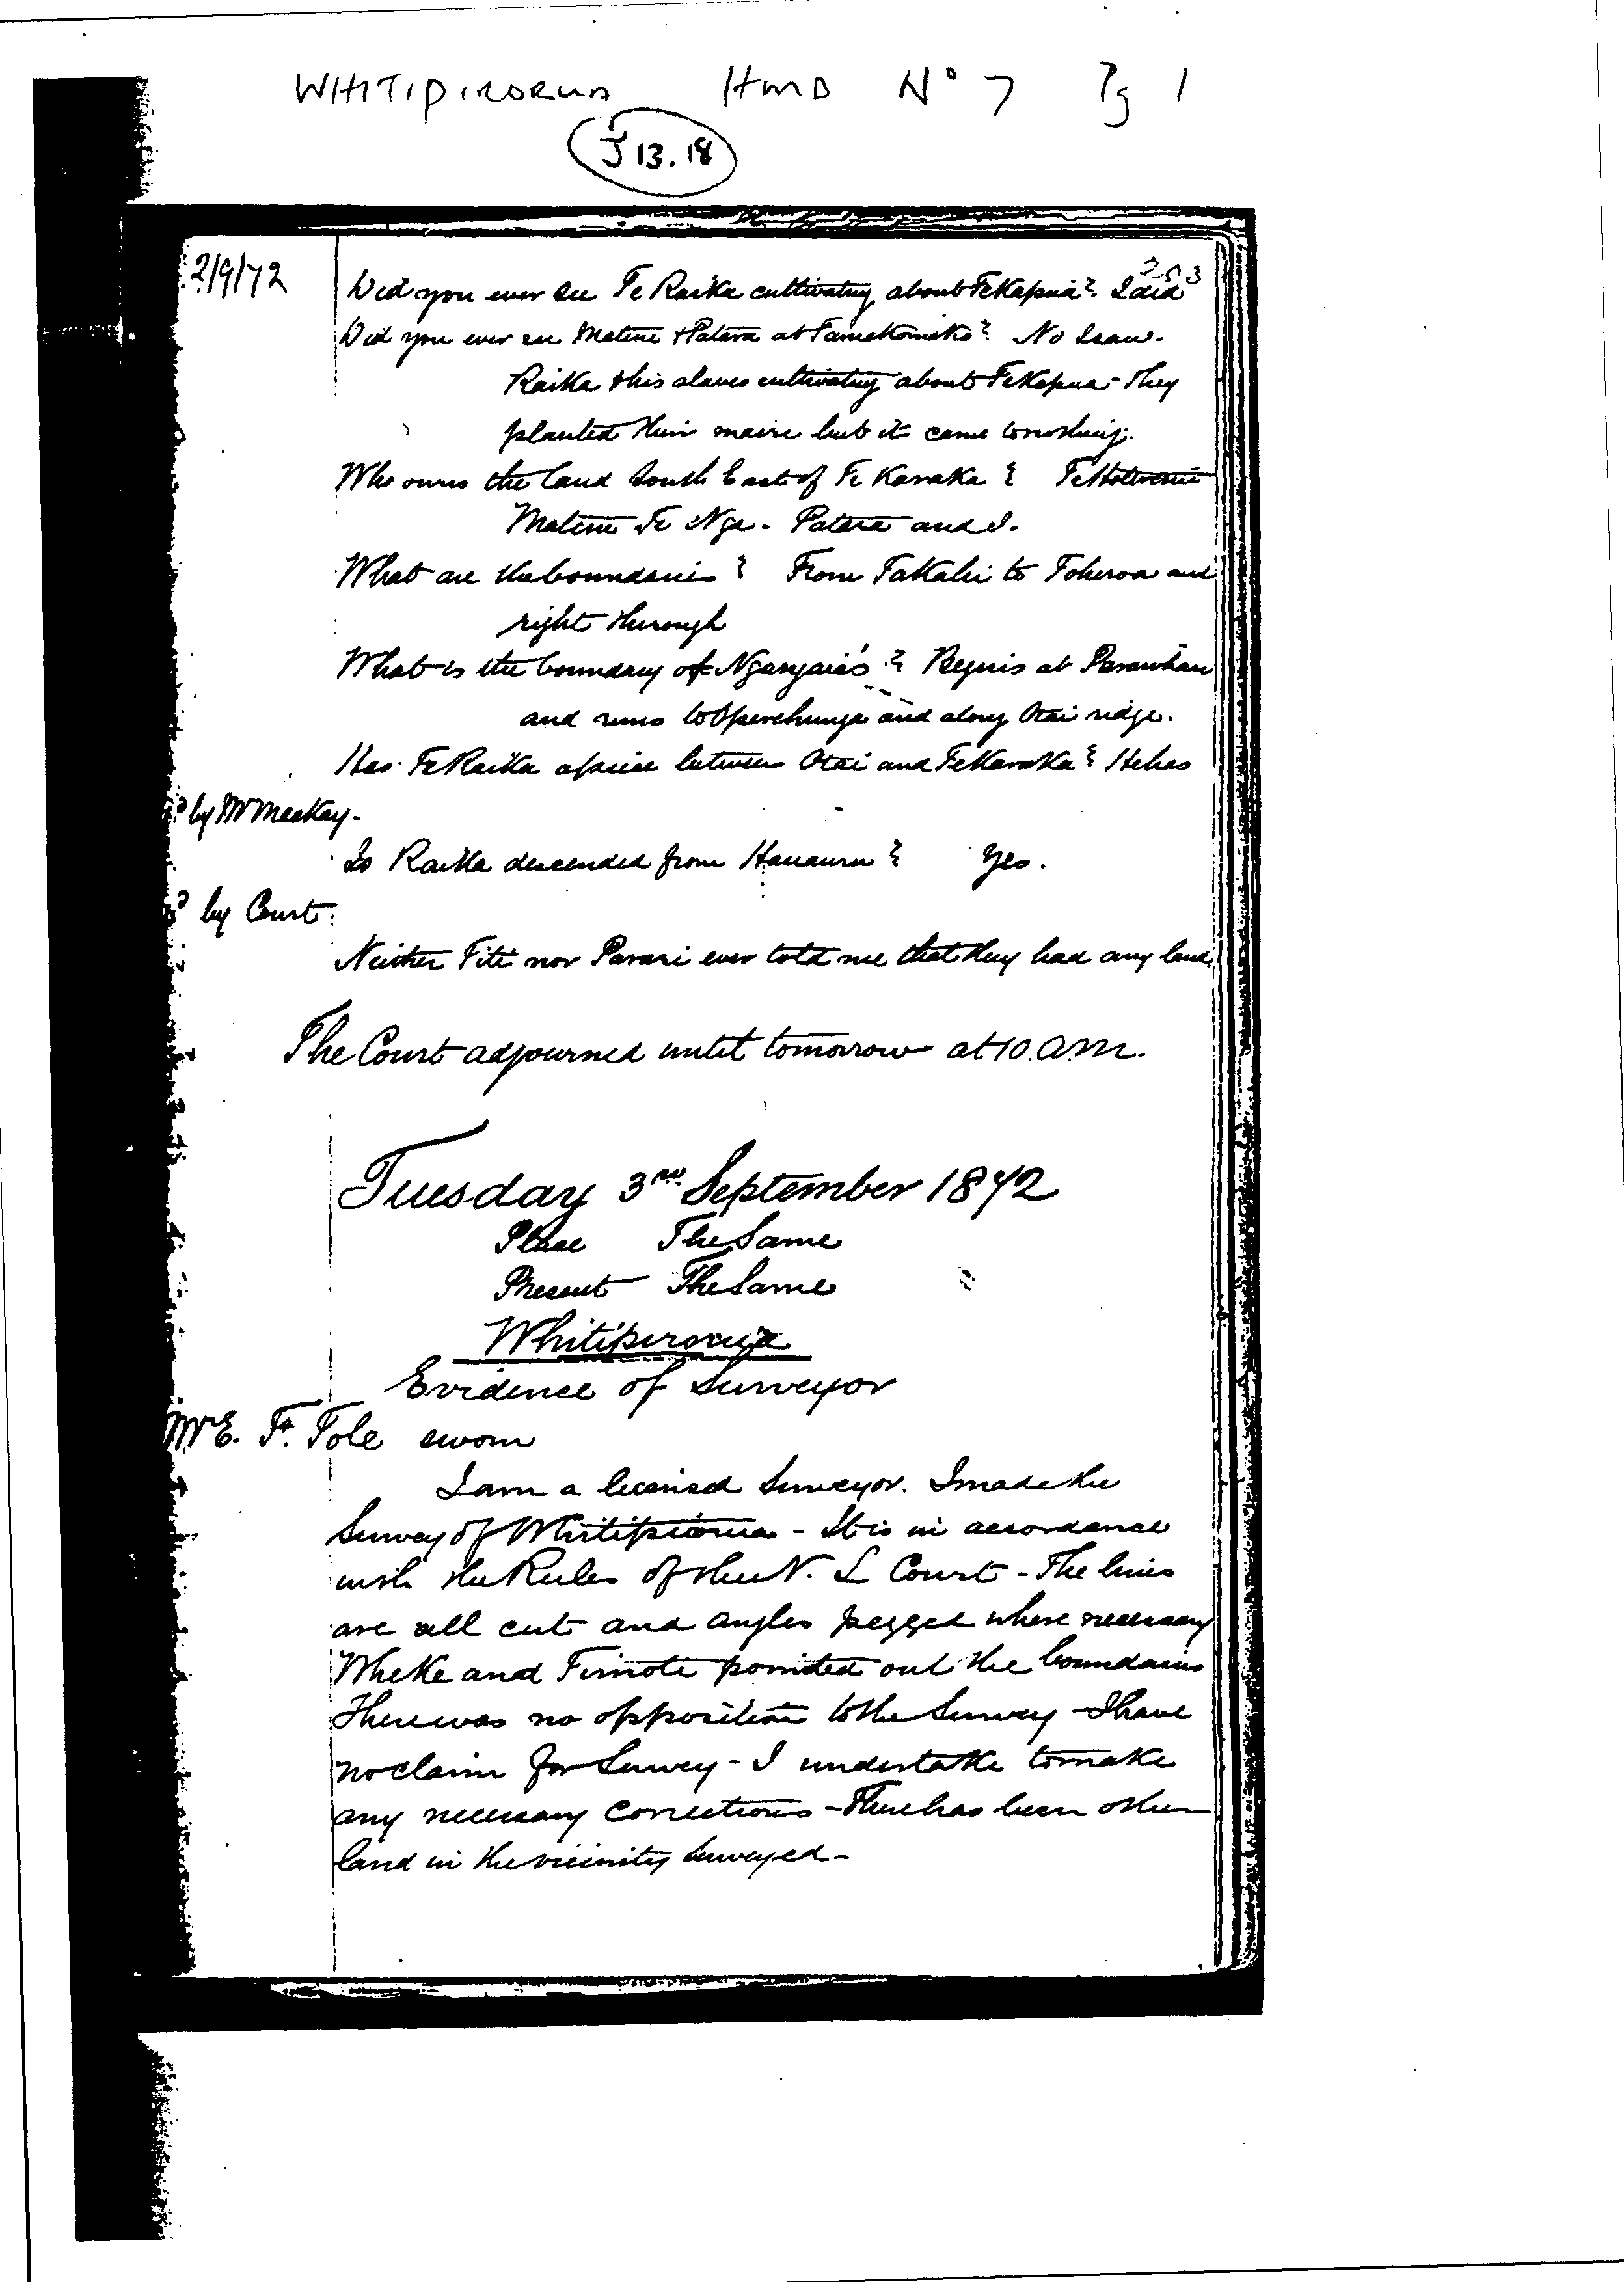 WHITIPIRORUA HMB No 7 Pg 1
J 13.18
2/9/72
Did you ever see Te Raika cultivating about Te Kapua? I did
Did you ever see Matene & Patara at ? No I saw
Raika & his slaves cultivating about Te Kapua - They
planted their maize but it came to nothing.
Who owns the land South East of Te Karaka?
Matene Te Nga - Patara and I.
What are the boundaries? From Takahi to Toheroa and
right through
What is the boundary of Ngangaia's? Begins at
and runs to and along Otai ridge.
Has Te Raika a piece between Otai and Te Karaka? He has
by Mr Mackay -
Is Raika descended from Hauauru? Yes.
by Court
Neither Titi nor Parari ever told me that they had any land.
The Court adjourned until tomorrow at 10. a.m.
Tuesday 3rd September 1872
Place The Same
Present The Same
Whitipirorua
Evidence of Surveyor
Mr E. F. Tole sworn
I am a licensed Surveyor. I made the
Survey of Whitipirorua - It is in accordance
with the Rules of the N. L Court - The lines
are all cut and angles pegged where necessary
Wheke and Timote pointed out the boundaries
There was no opposition to the Survey - I have
no claim for Survey - I undertake to make
any necessary corrections - There has been other
land in the vicinity surveyed -